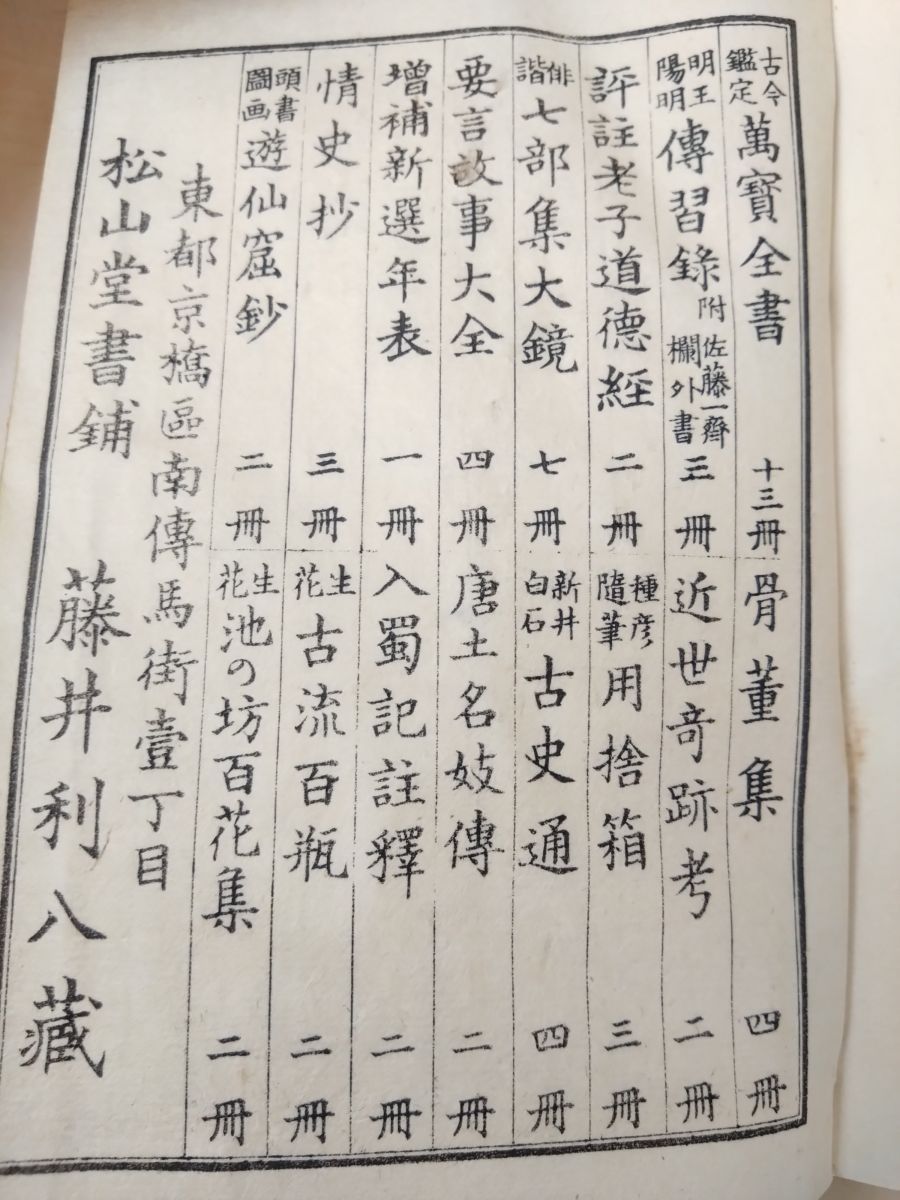 古今鑑定萬寶全書 十三冊
骨董集 四冊
明王陽明傳習錄 附佐藤一齋欄外書 三冊
近世奇跡考 二冊
評註老子道德經 二冊
種彦隨筆用捨箱 三冊
俳諧七部集大鏡 七冊
新井白石古史通 四冊
要言故事大全 四冊
唐土名妓傳 二冊
增補新選年表 一冊
入蜀記註釋 二冊
情史抄 三冊
生花古流百瓶 二冊
頭書圖画遊仙窟鈔 二冊
生花池の坊百花集 二冊
東都京橋區南傳馬街壹丁目
松山堂書鋪 藤井利八藏